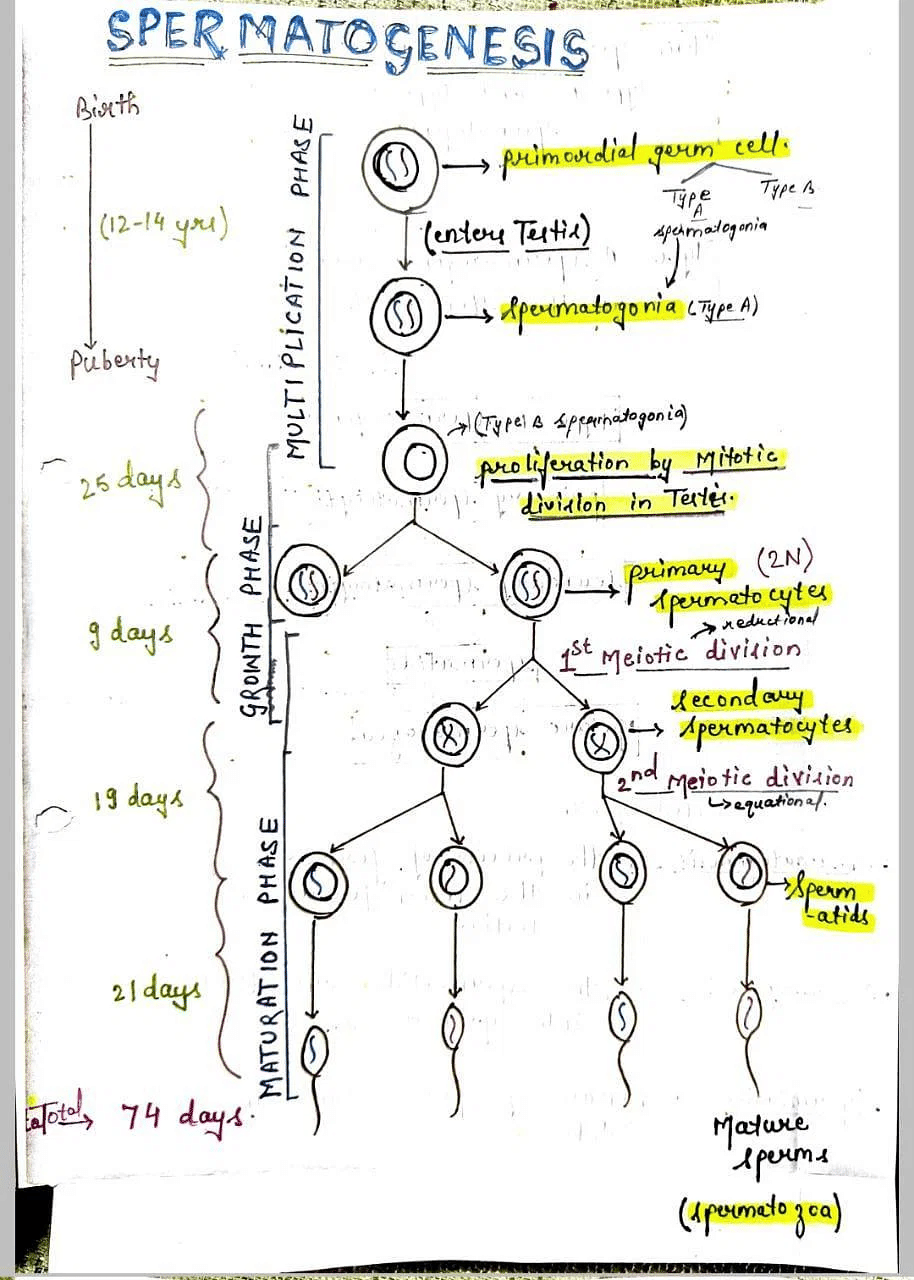 SPERMATOGENESIS
Birth
(12-14 yrs)
Puberty
25 days
9 days
19 days
21 days
Total → 74 days.
MULTIPLICATION PHASE
GROWTH PHASE
MATURATION PHASE
primordial germ cell.
Type A
Type B
spermatogonia
(enters Testis)
spermatogonia (Type A)
(Type B spermatogonia)
proliferation by Mitotic
division in Testis.
primary (2N)
spermatocytes
reductional
1st Meiotic division
secondary
spermatocytes
2nd Meiotic division
equational.
sperm
-atids
Mature
sperms
(spermatozoa)